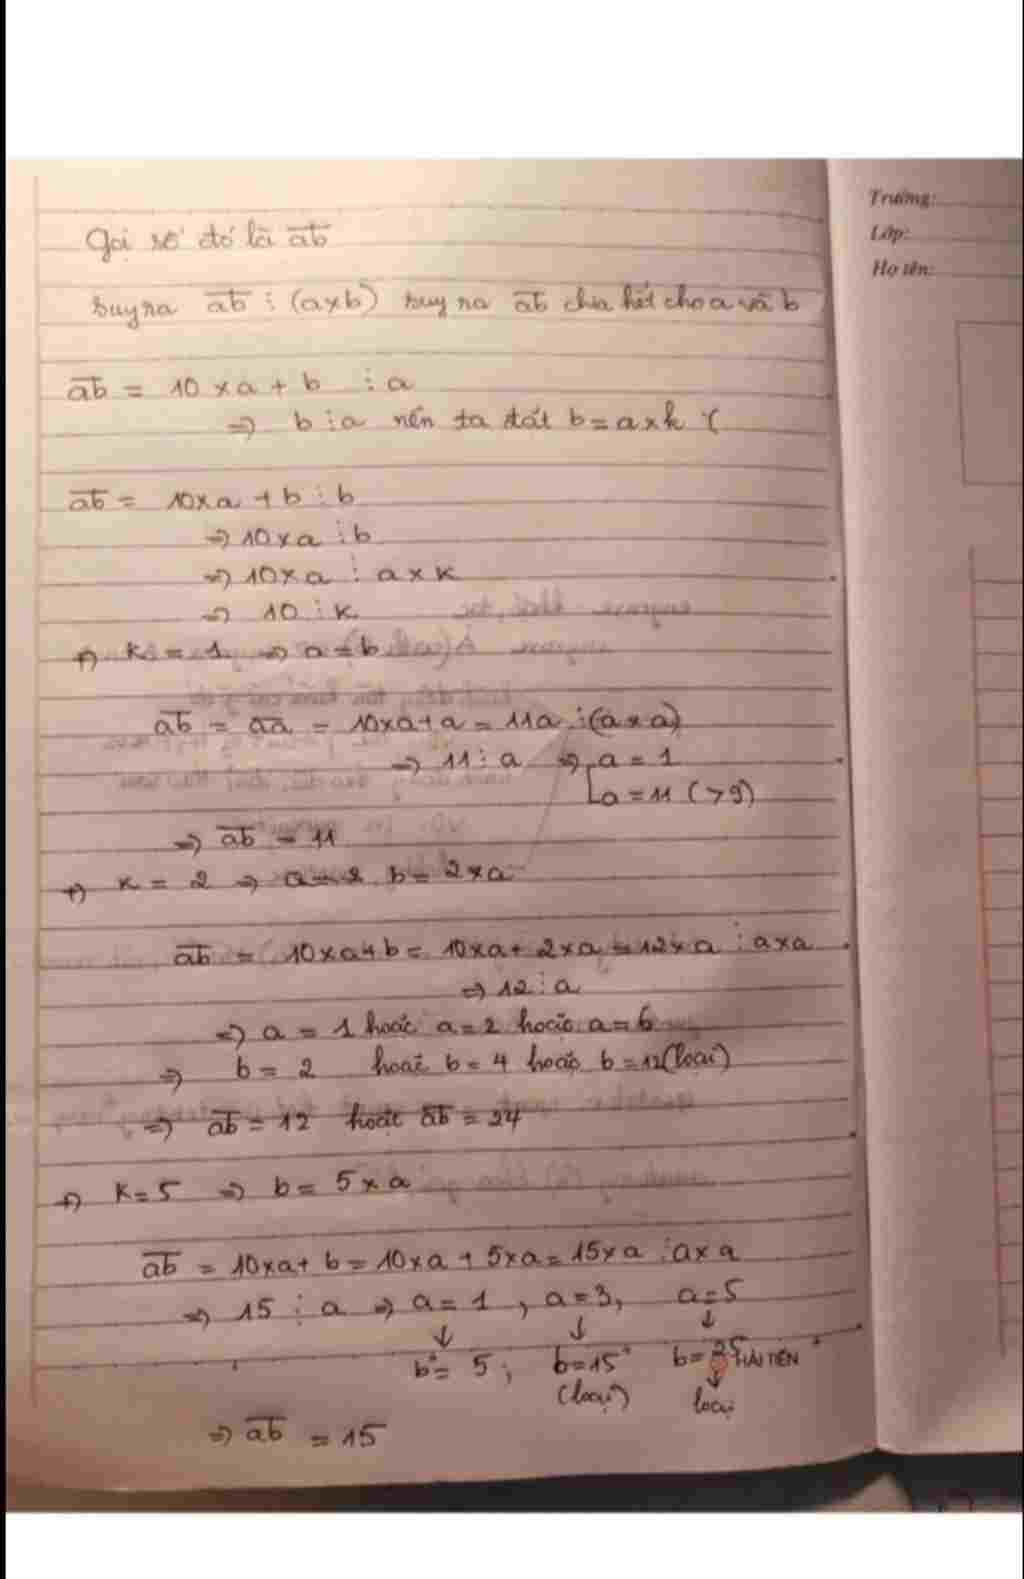 Gọi số đó là ab
suy ra ab ⋮ (a×b) suy ra ab chia hết cho a và b
ab = 10 × a + b ⋮ a
=> b ⋮ a nên ta đặt b = a × k (
ab = 10×a + b ⋮ b
=> 10×a ⋮ b
=> 10×a ⋮ a × k
=> 10 ⋮ k
+) k = 1 => a = b
ab = aa = 10×a+a = 11a ⋮ (a×a)
=> 11 ⋮ a => [a = 1
a = 11 (>9)
=> ab = 11
+) k = 2 => b = 2×a
ab = 10×a+b = 10×a + 2×a = 12×a ⋮ a×a
=> 12 ⋮ a
=> a = 1 hoặc a = 2 hoặc a = 6
=> b = 2 hoặc b = 4 hoặc b = 12 (loại)
=> ab = 12 hoặc ab = 24
+) k = 5 => b = 5 × a
ab = 10×a + b = 10×a + 5×a = 15×a ⋮ a×a
=> 15 ⋮ a => a = 1 , a = 3, a = 5
↓ ↓ ↓
b = 5 ; b = 15 b = 25 HẢI TIẾN
(loại) ↓
loại
=> ab = 15
Trường:
Lớp:
Họ tên: